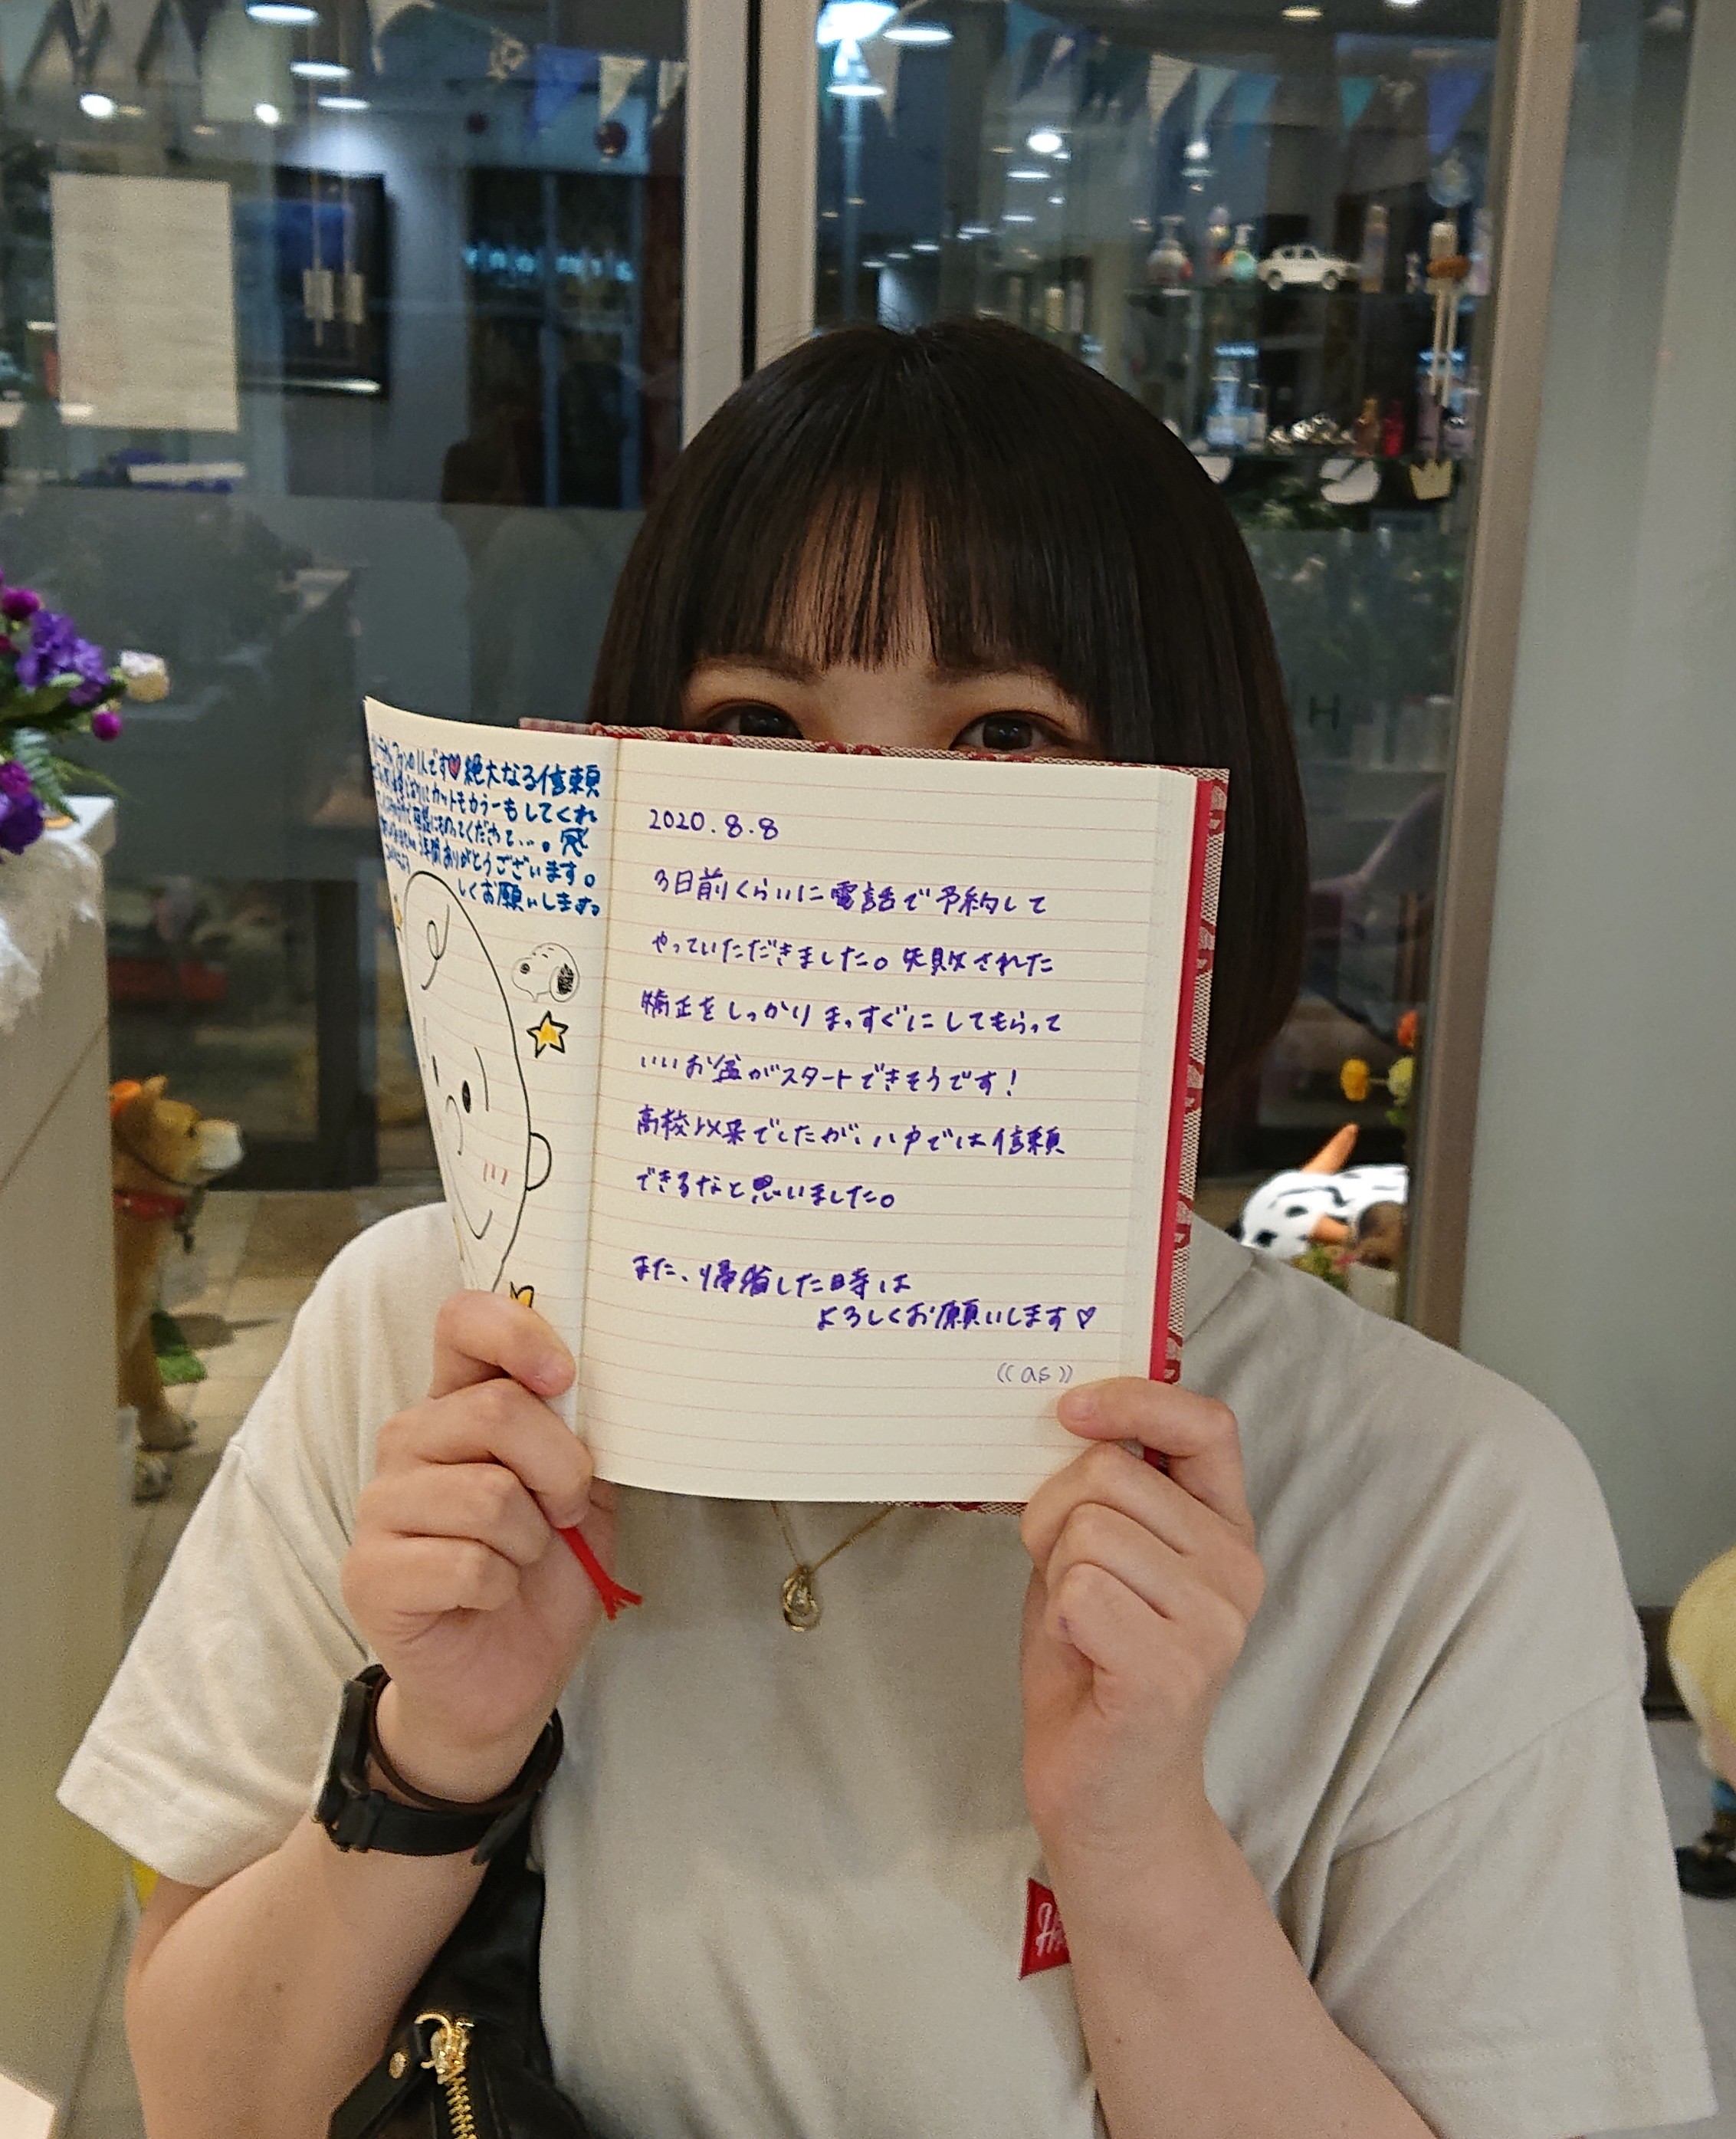 絶大なる信頼
カットもカラーもしてくれ
相談にのってくださって…。感
5年間ありがとうございます。
しくお願いします。
2020.8.8
3日前くらいに電話で予約して
やっていただきました。失敗された
矯正をしっかりまっすぐにしてもらって
いいお盆がスタートできそうです!
高校以来でしたが、八戸では信頼
できるなと思いました。
また、帰省した時は
よろしくお願いします♡
((as))
H